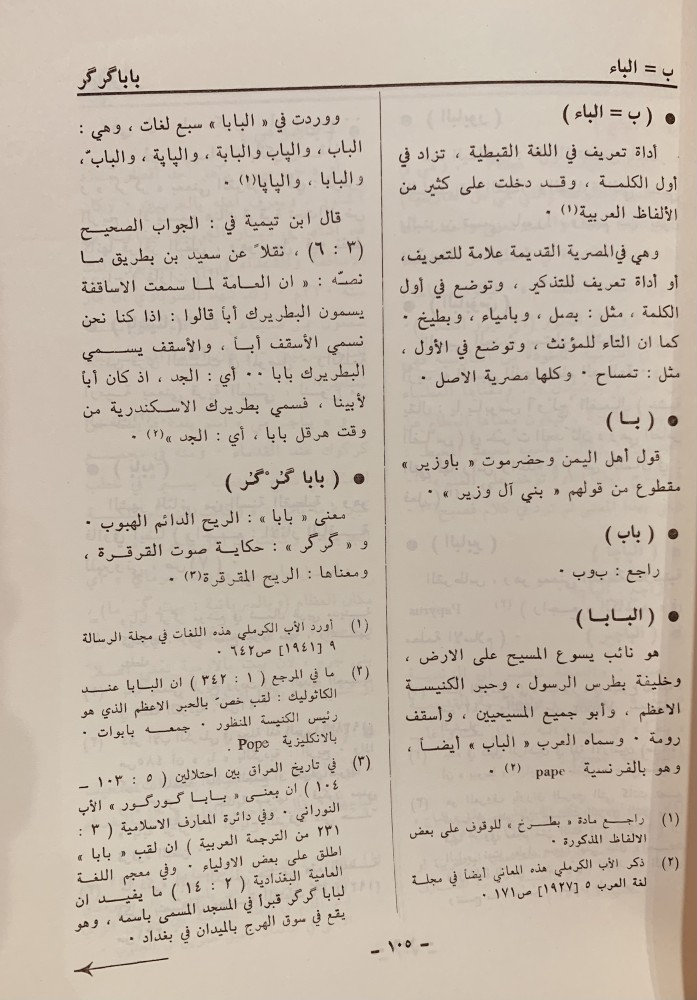 ب = الباء
باباگرگر
● ( ب = الباء )
أداة تعريف في اللغة القبطية ، تزاد في
أول الكلمة ، وقد دخلت على كثير من
الألفاظ العربية(١) ٠
وهي في المصرية القديمة علامة للتعريف،
أو أداة تعريف للتذكير ، وتوضع في أول
الكلمة ، مثل : بصل ، وبامياء ، وبطيخ ٠
كما ان التاء للمؤنث ، وتوضع في الأول ،
مثل : تمساح ٠ وكلها مصرية الاصل ٠
● ( بـا )
قول أهل اليمن وحضرموت « باوزير »
مقطوع من قولهم « بني آل وزير » ٠
● ( باب )
راجع : ب‌وب ٠
● ( البـابـا )
هو نائب يسوع المسيح على الارض ،
وخليفة بطرس الرسول ، وحبر الكنيسة
الاعظم ، وأبو جميع المسيحيين ، وأسقف
رومة ٠ وسماه العرب « الباب » أيضاً ،
وهو بالفرنسية pape (٢) ٠
(١) راجع مادة « بطرخ » للوقوف على بعض
الالفاظ المذكورة ٠
(٢) ذكر الأب الكرملي هذه المعاني أيضاً في مجلة
لغة العرب ٥ [١٩٢٧] ص١٧١ ٠
ووردت في « البابا » سبع لغات ، وهي :
الباب ، والپاب والبابة ، والپاپة ، والبابّ،
والبابا ، والپاپا(١) ٠
قال ابن تيمية في : الجواب الصحيح
(٣ : ٦) ، نقلاً عن سعيد بن بطريق ما
نصّه : « ان العامة لما سمعت الاساقفة
يسمون البطريرك أباً قالوا : اذا كنا نحن
نسمي الأسقف أباً ، والأسقف يسمي
البطريرك بابا ٠٠ أي : الجد ، اذ كان أباً
لأبينا ، فسمي بطريرك الاسكندرية من
وقت هرقل بابا ، أي : الجد »(٢) ٠
● ( بابا گُرْگُر )
معنى « بابا » : الريح الدائم الهبوب ٠
و « گرگر » : حكاية صوت القرقرة ،
ومعناها : الريح المقرقرة(٣) ٠
(١) أورد الأب الكرملي هذه اللغات في مجلة الرسالة
٩ [١٩٤١] ص٦٤٢ ٠
(٢) ما في المرجع ( ١ : ٣٤٢ ) ان البابا عند
الكاثوليك : لقب خصّ بالحبر الاعظم الذي هو
رئيس الكنيسة المنظور ٠ جمعه بابوات ٠
بالانكليزية Pope .
(٣) في تاريخ العراق بين احتلالين ( ٥ : ١٠٣ –
١٠٤ ) ان معنى « بابا گورگور » الأب
النوراني ٠ وفي دائرة المعارف الاسلامية ( ٣ :
٢٣١ من الترجمة العربية ) ان لقب « بابا »
اطلق على بعض الاولياء ٠ وفي معجم اللغة
العامية البغدادية ( ٢ : ١٤ ) ما يفيد ان
لبابا گرگر قبراً في المسجد المسمى باسمه ، وهو
يقع في سوق الهرج بالميدان في بغداد ٠
– ١٠٥ –